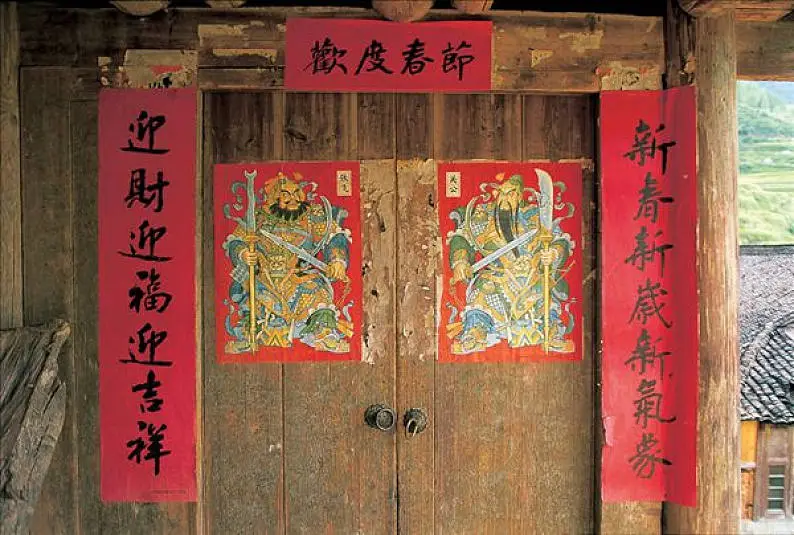 歡度春節
新春新歲新氣象
迎財迎福迎吉祥
关公
張飞